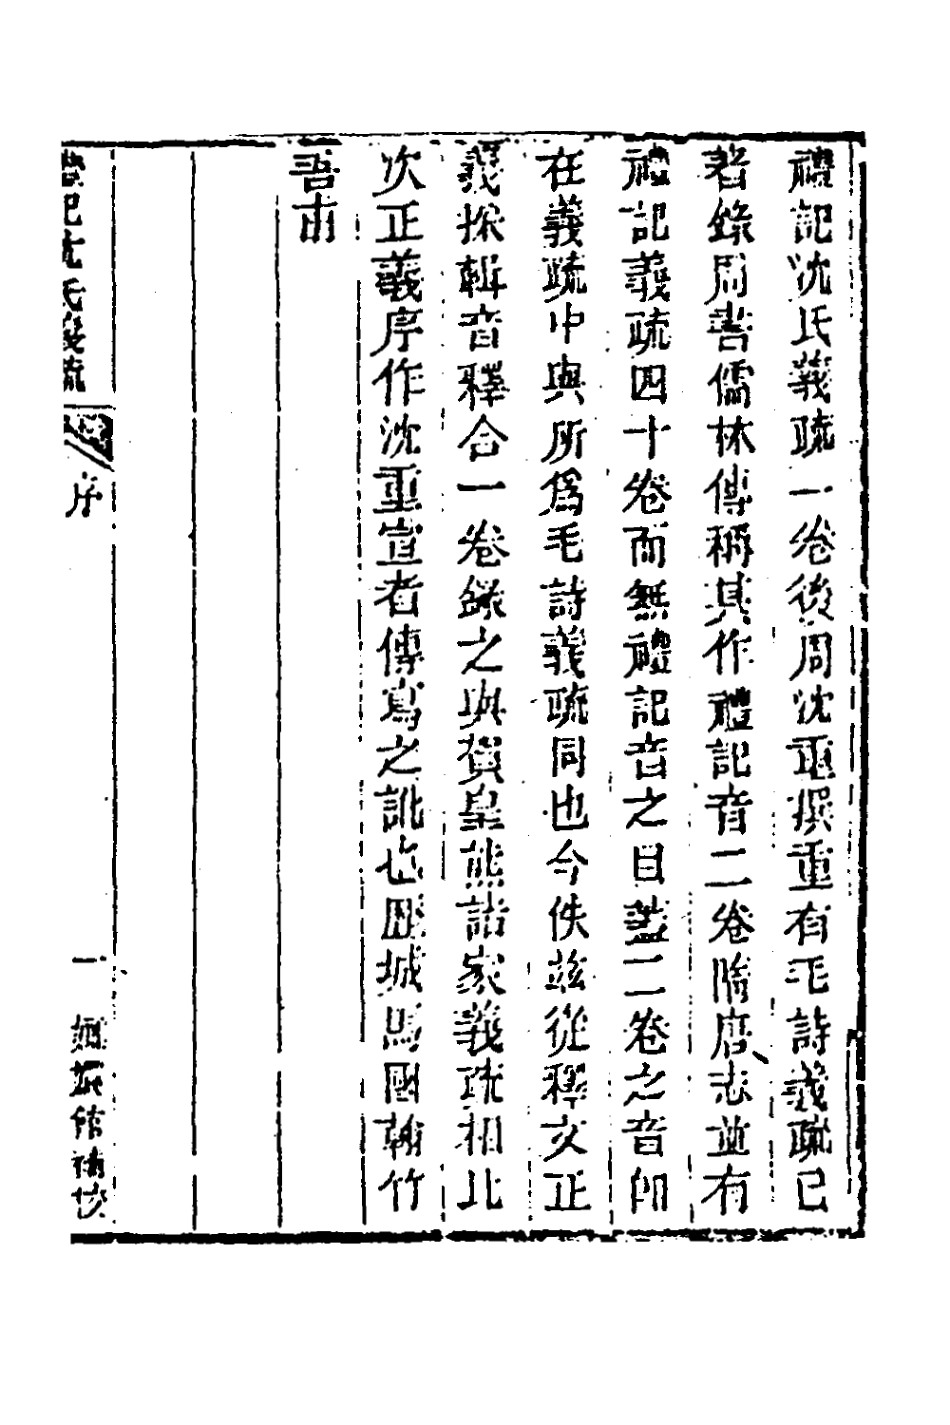 禮記沈氏義疏一卷後周沈重撰重有毛詩義疏已
著錄周書儒林傳稱其作禮記音二卷隋唐志並有
禮記義疏四十卷而無禮記音之目蓋二卷之音即
在義疏中與所爲毛詩義疏同也今佚兹從釋文正
義採輯音釋合一卷錄之與賀皇熊諸家義疏相比
次正義序作沈重宣者傳寫之訛也歴城馬國翰竹
吾甫
禮記沈氏義疏
序
一
嫏嬛館補校